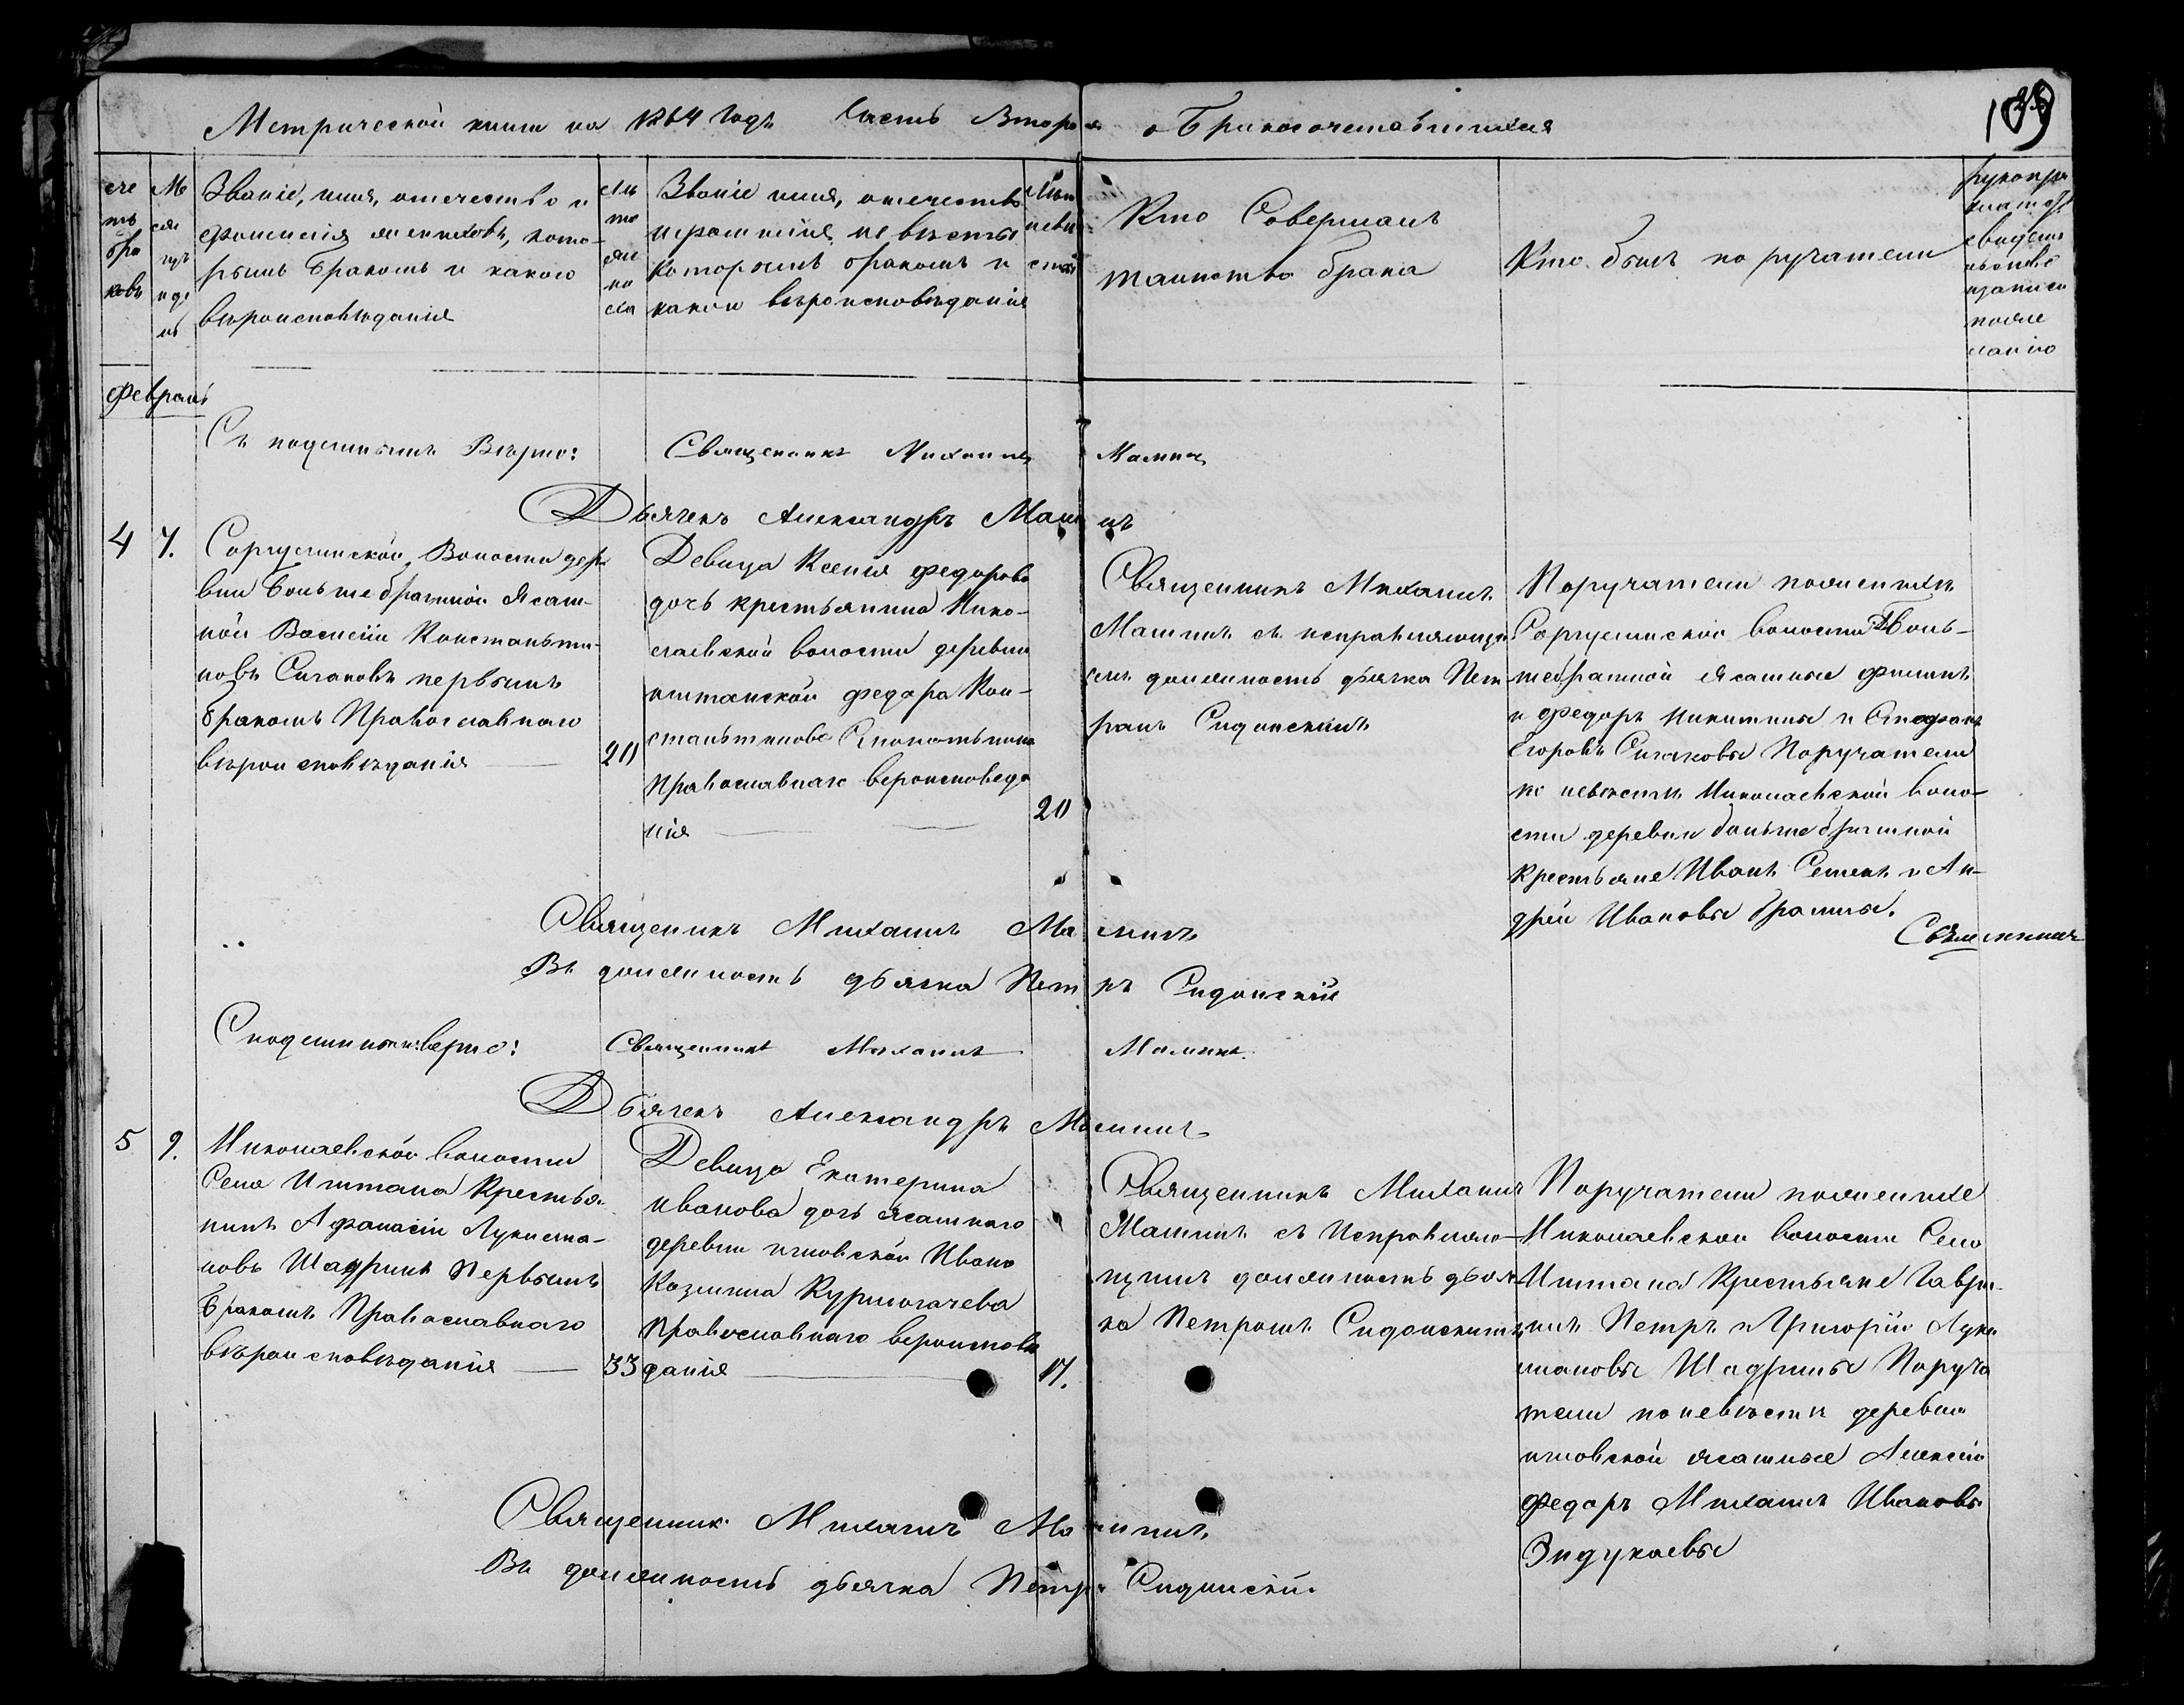 Метрической книги на 1864 годъ Часть Вторая о Бракосочетавшихся
139
Счетъ браковъ
Мѣсяцъ и день
Званіе, имя, отечество и
фамилія жениховъ, кото-
рымъ бракомъ и какого
вѣроисповѣданія
Лѣта жениха
Званіе имя, отечество
и фамилія невѣсты
которымъ бракомъ и
какого вѣроисповѣданія
Лѣта невѣсты
Кто Совершалъ
таинство брака
Кто былъ поручатели
Февраль
Съ подлиннымъ Вѣрно: Священникъ Михаилъ Малинъ
Дьячекъ Александръ Малинъ
4 7.
волости дер
вни Большебратской Ясаш-
ной Василій Константи-
новъ Сигаковъ первымъ
бракомъ Православнаго
вѣроисповѣданія 20
Девица Ксенія федорова
дочь крестьянина Нико-
лаевской волости деревни
федора Кон-
стантинова
православнаго вероисповеда
нія 20
Священникъ Михаилъ
Малинъ съ исправляющи
мъ должность дьячка Пет-
ромъ Сидонскимъ
Поручатели по женихѣ
волости Боль-
шебратской Ясашные Филипъ
и Федоръ Никитины и Стефанъ
Егоровъ Сигаковы Поручатели
по невѣсти Николаевской воло-
сти деревни большебратской
Крестьяне Иванъ Семенъ и Ан-
дрей Ивановы братья.
Священникъ Михаилъ Малинъ
Въ должность дьячка Петръ Сидонскій
С подлиннымъ верно: Священникъ Михаилъ Малинъ
Дьячекъ Александръ Малинъ
5 9.
Николаевской волости
Села Иштана Крестья-
нинъ Афанасій Лукиста-
новъ Шадринъ Первымъ
Бракомъ Православнаго
вѣроисповѣданія 33
Девица Екатерина
Иванова дочь ясашнаго
деревни игловской Ивана
Козмина Курмогачева
Православнаго вероисповѣ
данія 17.
Священникъ Михаилъ
Малинъ съ Исправляю-
щимъ должность дьяч-
ка Петромъ Сидонскимъ
Поручатели по женихе
Николаевской волости Села
Иштана Крестьяне Гаври-
илъ Петръ и Григорій Луки
Шадрины Поруча
тели по невѣсти деревни
игловской ясашные Алексій
Федоръ Михаилъ Ивановы
Эндукаевы
Священникъ Михаилъ Малинъ
Въ должность дьячка Петръ Сидонскій